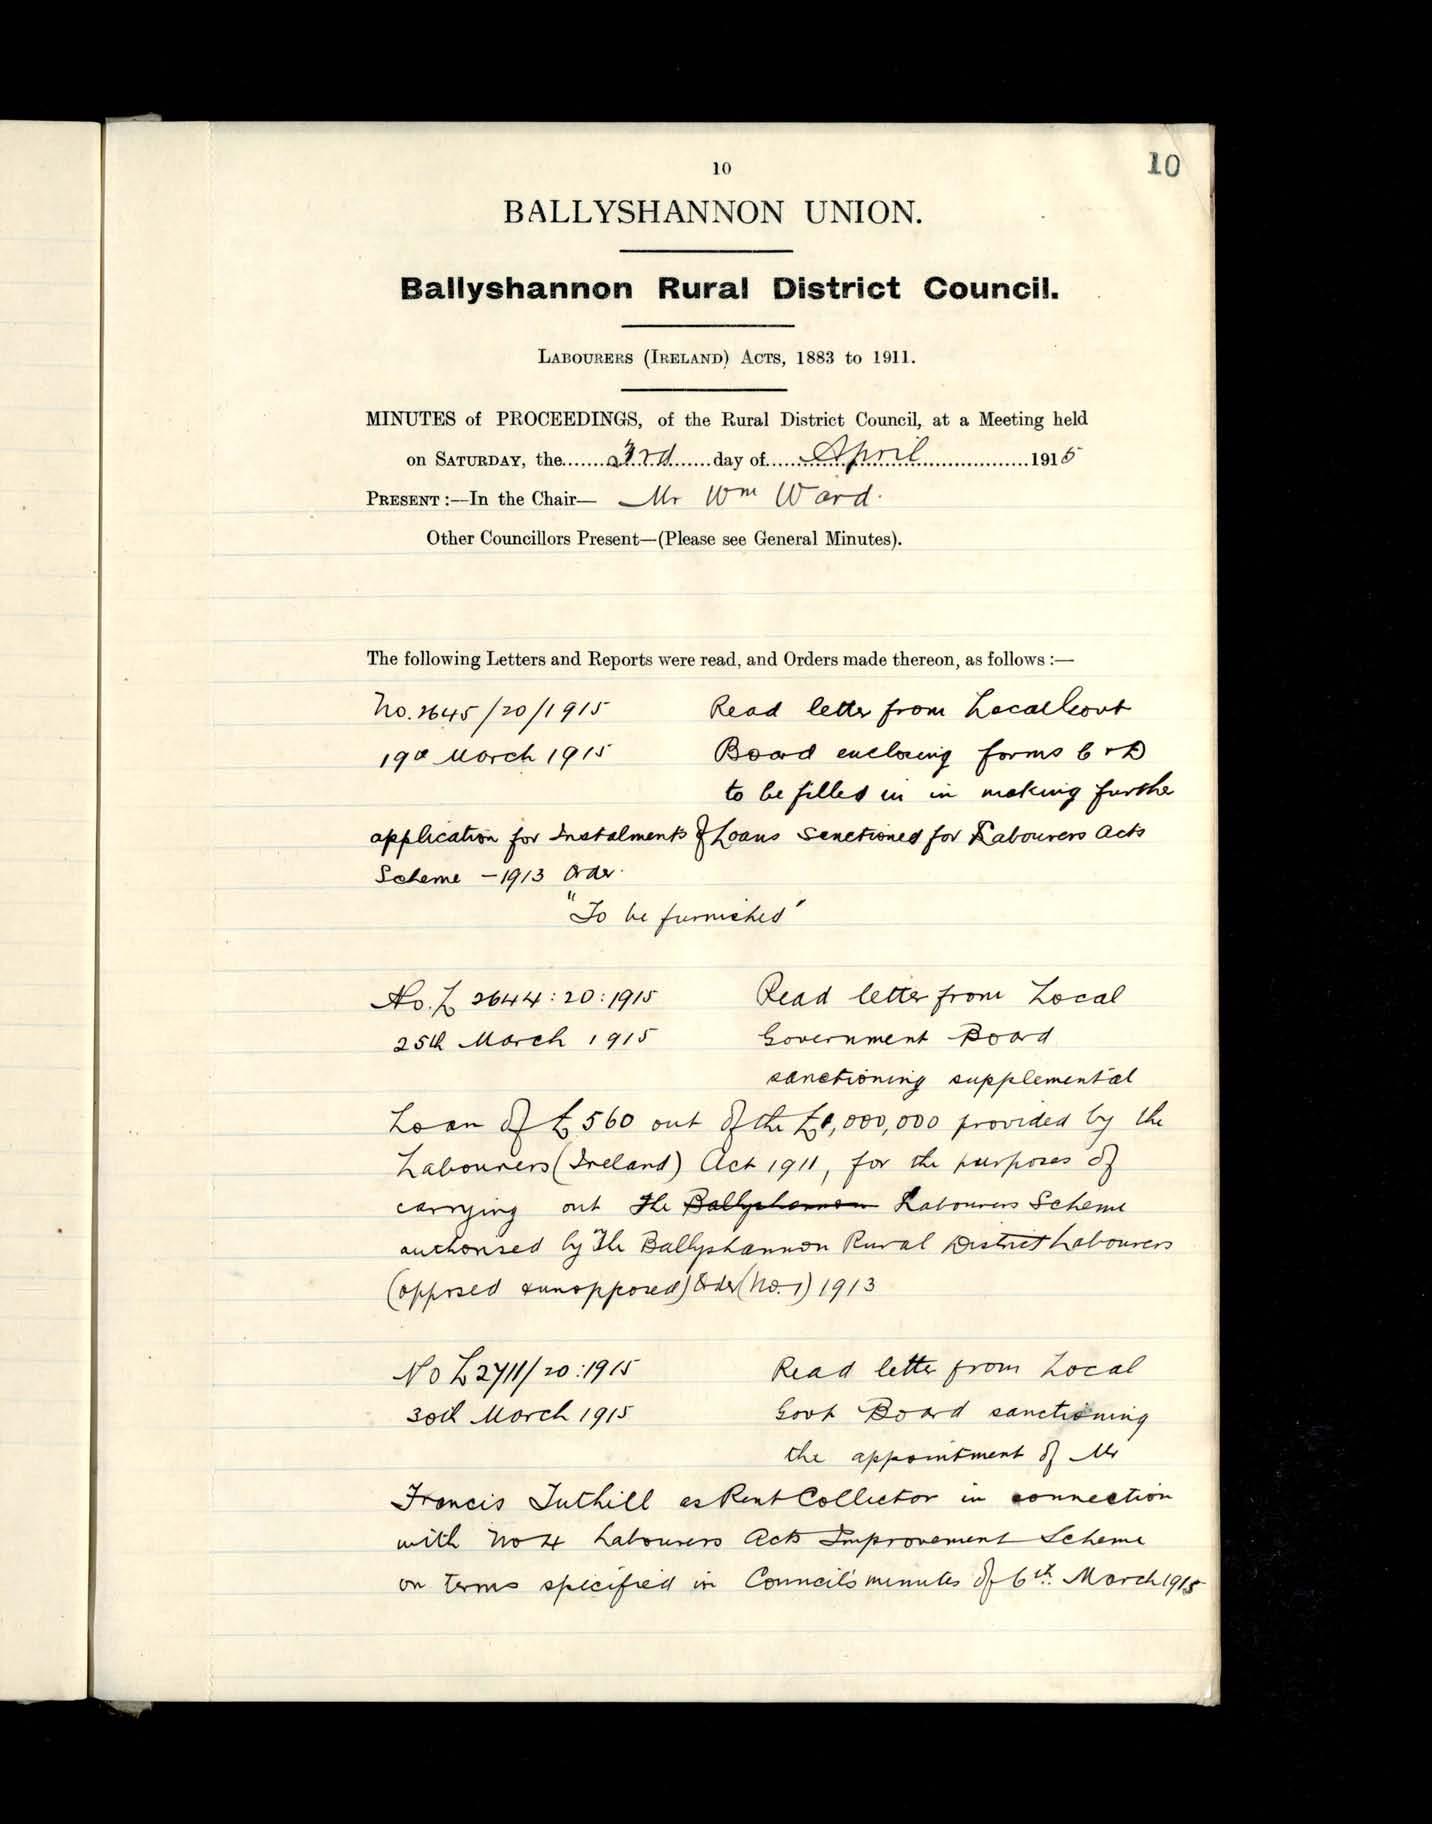 10
10
BALLYSHANNON UNION.
Ballyshannon Rural District Council.
LABOURERS (IRELAND) ACTS, 1883 to 1911.
MINUTES of PROCEEDINGS, of the Rural District Council, at a Meeting held
on SATURDAY, the 3rd day of April 1915
PRESENT:—In the Chair— Mr Wm Ward.
Other Councillors Present—(Please see General Minutes).
The following Letters and Reports were read, and Orders made thereon, as follows:—
No. 2645/20/1915 Read letter from Local Govt
19th March 1915 Board enclosing forms C & D
to be filled in in making further
application for Instalments of Loans sanctioned for Labourers Acts
Scheme — 1913 Order.
"To be furnished"
No. L 2644:20:1915 Read letter from Local
25th March 1915 Government Board
sanctioning supplemental
Loan of £560 out of the £1,000,000 provided by the
Labourers (Ireland) Act 1911, for the purposes of
carrying out the Ballyshannon Labourers Scheme
authorised by The Ballyshannon Rural District Labourers
(opposed & unopposed) Order (No. 1) 1913
No L 2711/20:1915 Read letter from Local
30th March 1915 Govt Board sanctioning
the appointment of Mr
Francis Tuthill as Rent Collector in connection
with No 4 Labourers Acts Improvement Scheme
on terms specified in Council's minutes of 6th March 1915